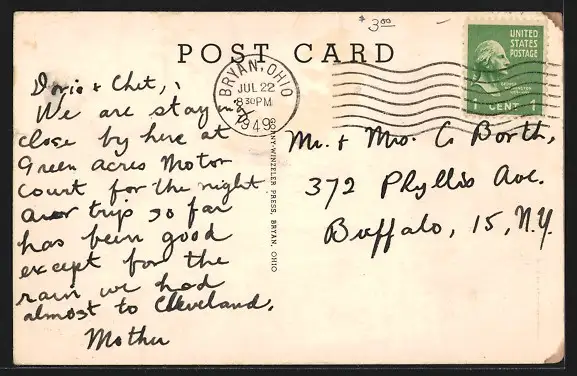 $ 3.00
POST CARD
UNITED
STATES
POSTAGE
1 CENT 1
BRYAN, OHIO
JUL 22
8 30 PM
1949
Doris & Chet, ,
We are staying
close by here at
Green Acres Motor
Court for the night
our trip so far
has been good
except for the
rain we had
almost to Cleveland.
Mother
Mr. & Mrs. C. Borth,
372 Phyllis Ave.
Buffalo, 15, N.Y.
WINZELER PRESS, BRYAN, OHIO